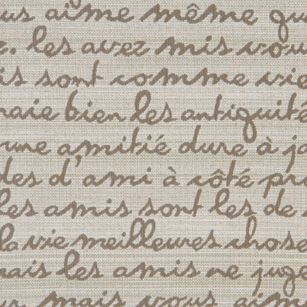 aime même
les avez mis vou
is sont comme vie
aie bien les antiquité
une amitié dure à ja
des d'ami à côté pr
les amis sont les de
la vie meilleures chose
mais les amis ne juge
mais vous aim